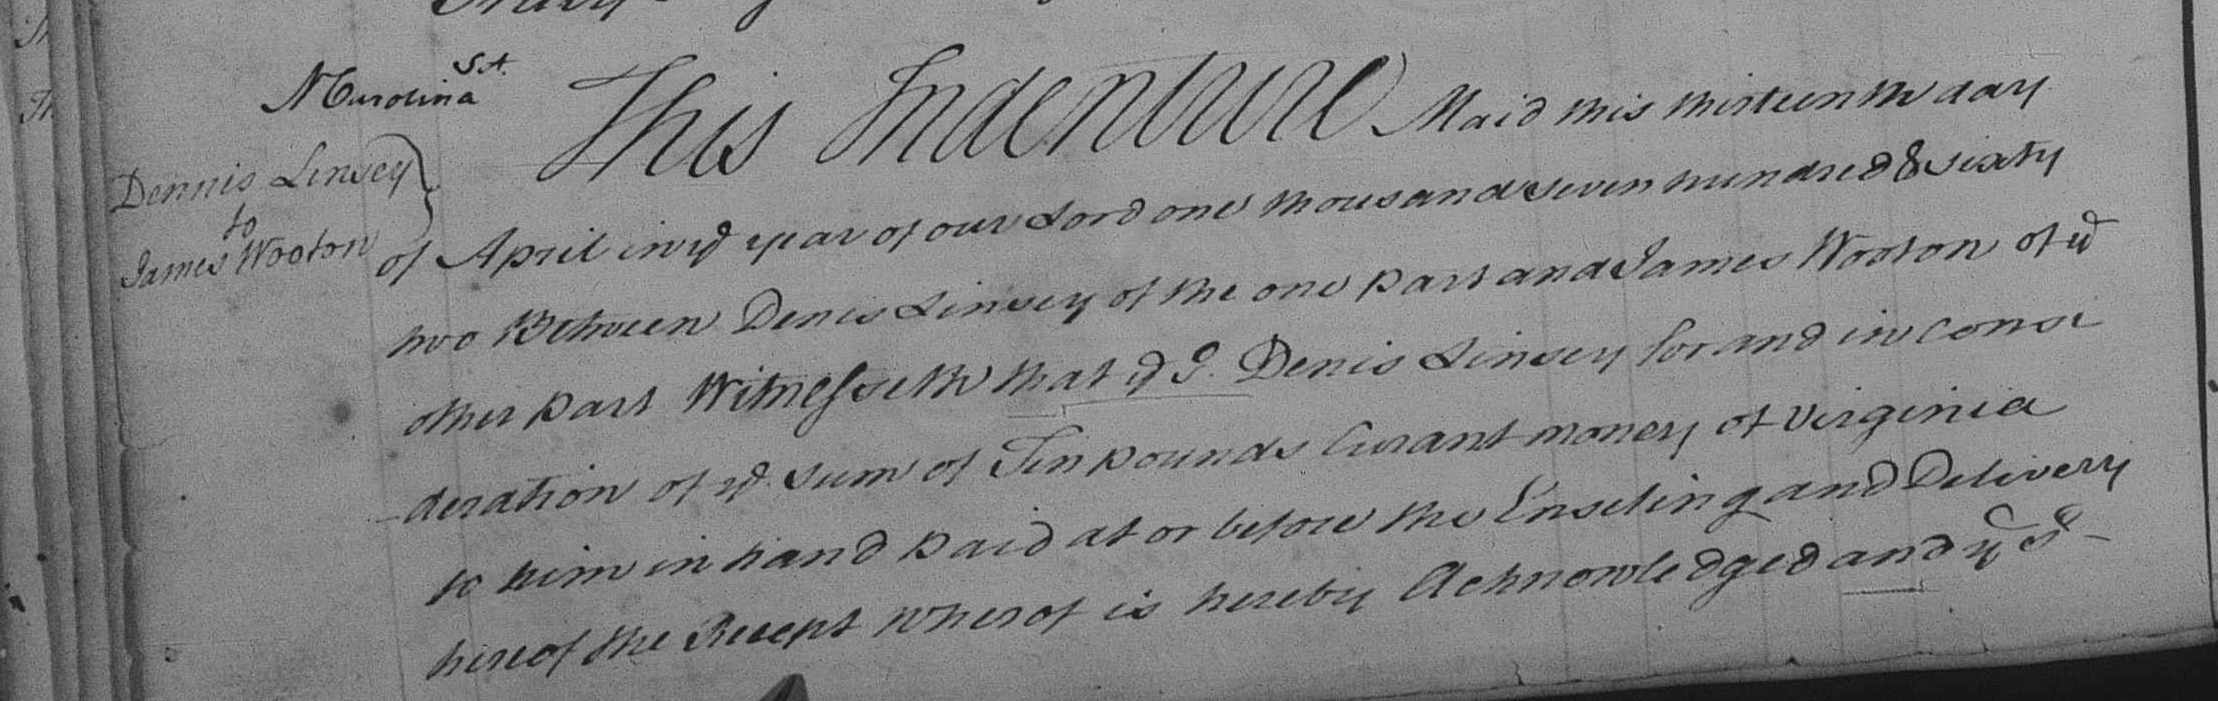 N Carolina Sct.
Dennis Linsey
to
James Wooton
This Indenture Maid this thirteenth day
of April in ye year of our Lord one thousand seven hundred & sixty
two Between Denis Linsey of the one part and James Wooton of ye
other part Witnesseth that ye Sd. Denis Linsey for and in consi
-deration of ye sum of Ten pounds Curant money of Virginia
to him in hand paid at or before the Enseling and Delivery
hereof the Recept wherof is hereby Acknowledged and ye Sd